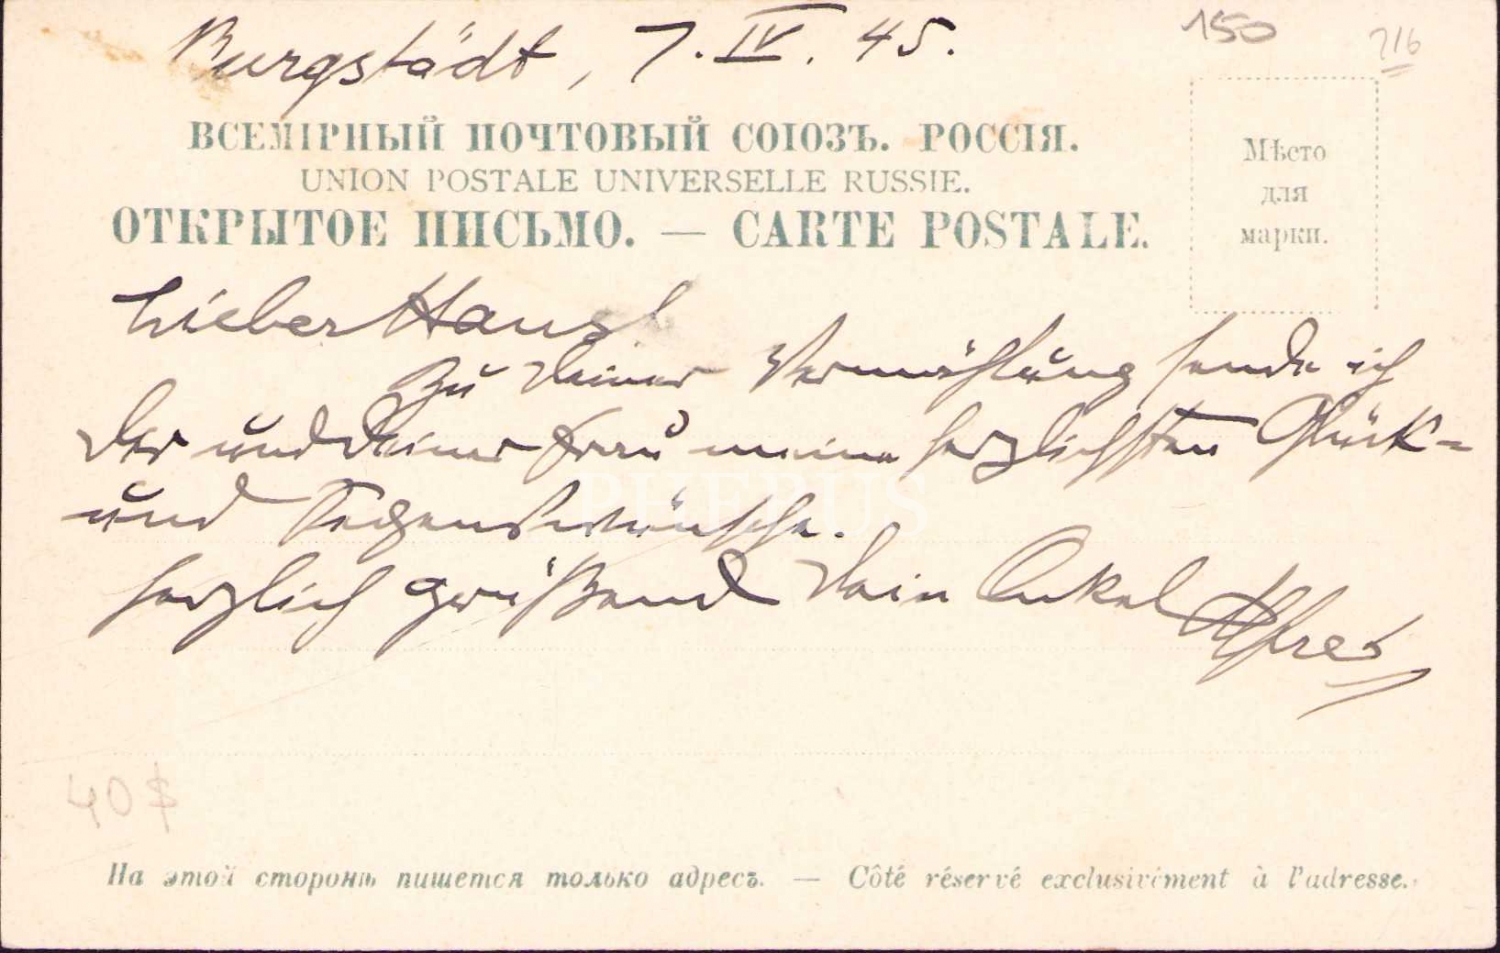 Burgstädt, 7. IV. 45.
150
716
ВСЕМІРНЫЙ ПОЧТОВЫЙ СОЮЗЪ. РОССІЯ.
UNION POSTALE UNIVERSELLE RUSSIE.
ОТКРЫТОЕ ПИСЬМО. — CARTE POSTALE.
Мѣсто
для
марки.
Lieber Hans!
Zu Deiner Vermählung sende ich
Dir und Deiner Frau meine herzlichsten Glück-
und Segenswünsche.
PHEBUS
Herzlich grüßend Dein Onkel Alfred
40 $
На этой сторонѣ пишется только адресъ. — Côté réservé exclusivément à l'adresse.